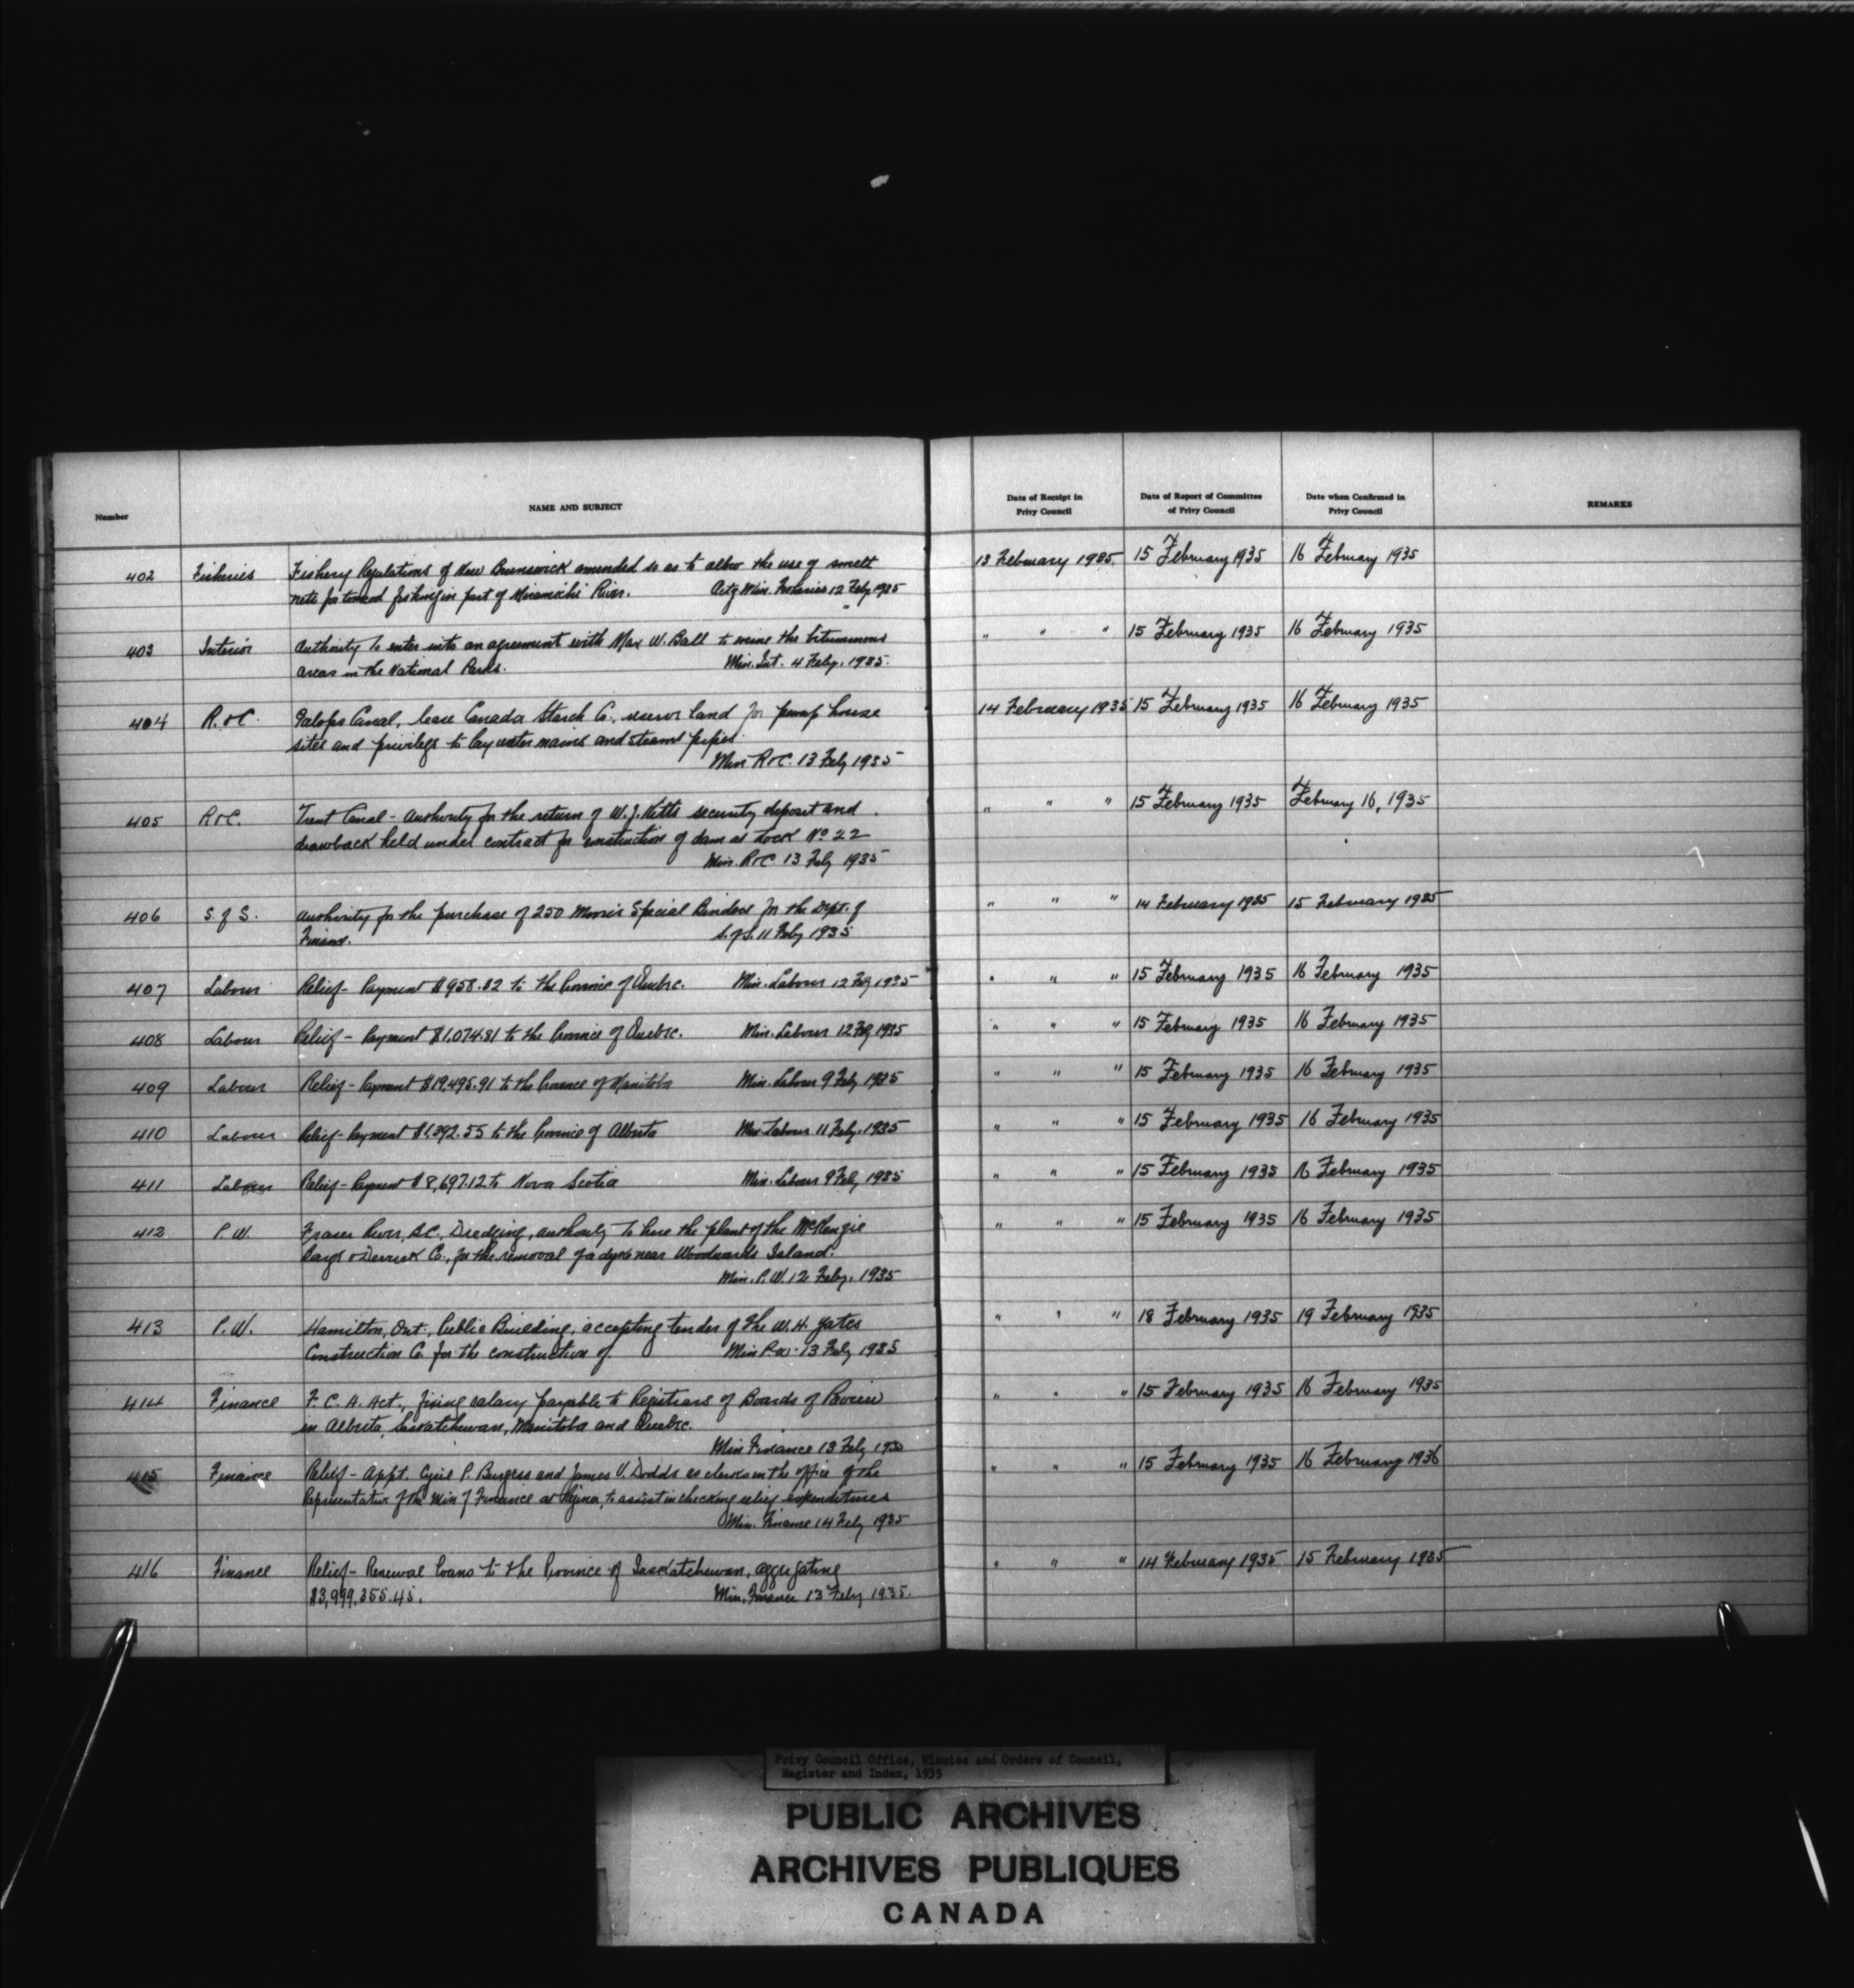 Number
NAME AND SUBJECT
Date of Receipt in
Privy Council
Date of Report of Committee
of Privy Council
Date when Confirmed in
Privy Council
REMARKS
402 Fisheries Fishery Regulations of New Brunswick amended so as to allow the use of smelt 13 February 1935 15 February 1935 16 February 1935
nets for tomcod fishing in part of Miramichi River. Actg Min. Fisheries 12 Feby 1935
403 Interior Authority to enter into an agreement with Max W. Ball to the bituminous " " " 15 February 1935 16 February 1935
areas in the National Parks. Min. Int. 4 Feby. 1935.
404 R. & C. Galops Canal, lease Canada Starch Co., reserve land for pump house 14 February 1935 15 February 1935 16 February 1935
sites and privilege to lay water mains and steam pipes.
Min R & C. 13 Feby 1935
405 R & C. Trent Canal - Authority for the return of W. J. security deposit and " " " 15 February 1935 February 16, 1935
drawback held under contract for construction of dam at Lock No 22
Min. R & C. 13 Feby 1935
406 S. of S. Authority for the purchase of 250 Morris Special Binders for the Dept. of " " " 14 February 1935 15 February 1935
Finance. S. of S. 11 Feby 1935
407 Labour Relief - Payment $958.82 to the Province of Quebec. Min. Labour 12 Feby 1935 " " " 15 February 1935 16 February 1935
408 Labour Relief - Payment $1,074.81 to the Province of Quebec. Min. Labour 12 Feby 1935 " " " 15 February 1935 16 February 1935
409 Labour Relief - Payment $19,495.91 to the Province of Manitoba Min. Labour 9 Feby 1935 " " " 15 February 1935 16 February 1935
410 Labour Relief - Payment $1,392.55 to the Province of Alberta Min. Labour 11 Feby. 1935 " " " 15 February 1935 16 February 1935
411 Labour Relief - Payment $8,697.12 to Nova Scotia Min. Labour 9 Feby 1935 " " " 15 February 1935 16 February 1935
412 P. W. Fraser River, B.C., Dredging, authority to hire the plant of the McKenzie " " " 15 February 1935 16 February 1935
Barge & Derrick Co., for the removal of a dyke near Woodwards Island.
Min. P. W. 12 Feby. 1935
413 P. W. Hamilton, Ont., Public Building, accepting tender of the W. H. Yates " " " 18 February 1935 19 February 1935
Construction Co. for the construction of Min P.W. 13 Feby 1935
414 Finance F. C. A. Act., fixing salary payable to Registrars of Boards of Review " " " 15 February 1935 16 February 1935
in Alberta, Saskatchewan, Manitoba and Quebec.
Min Finance 13 Feby
415 Finance Relief - Appt. Cyril P. Burgess and James V. Dodds as clerks in the office of the " " " 15 February 1935 16 February 1936
Representative of the Min of Finance at Regina, to assist in checking relief expenditures
Min. Finance 14 Feby 1935
416 Finance Relief - Renewal loans to the Province of Saskatchewan, aggregating " " " 14 February 1935 15 February 1935
$3,999,355.45. Min. Finance 13 Feby 1935.
Privy Council Office, Minutes and Orders of Council,
Register and Index, 1935
PUBLIC ARCHIVES
ARCHIVES PUBLIQUES
CANADA